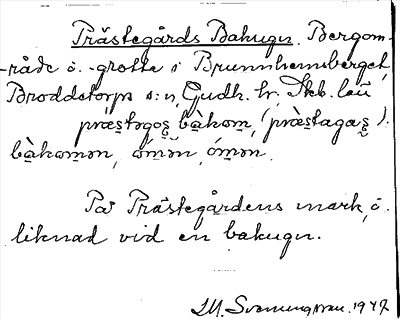 Prästegårds Bakugn. Bergom-
-råde o. -grotte i Brunnhemsberget,
Broddetorps s:n, Gudh. hr. Skb. län
præ̀s̠təgos̠ bàkom, (præ̀s̠tagas̠):
bàkomən, ómən, ómən.
På Prästegårdens mark, o.
liknad vid en bakugn.
1947